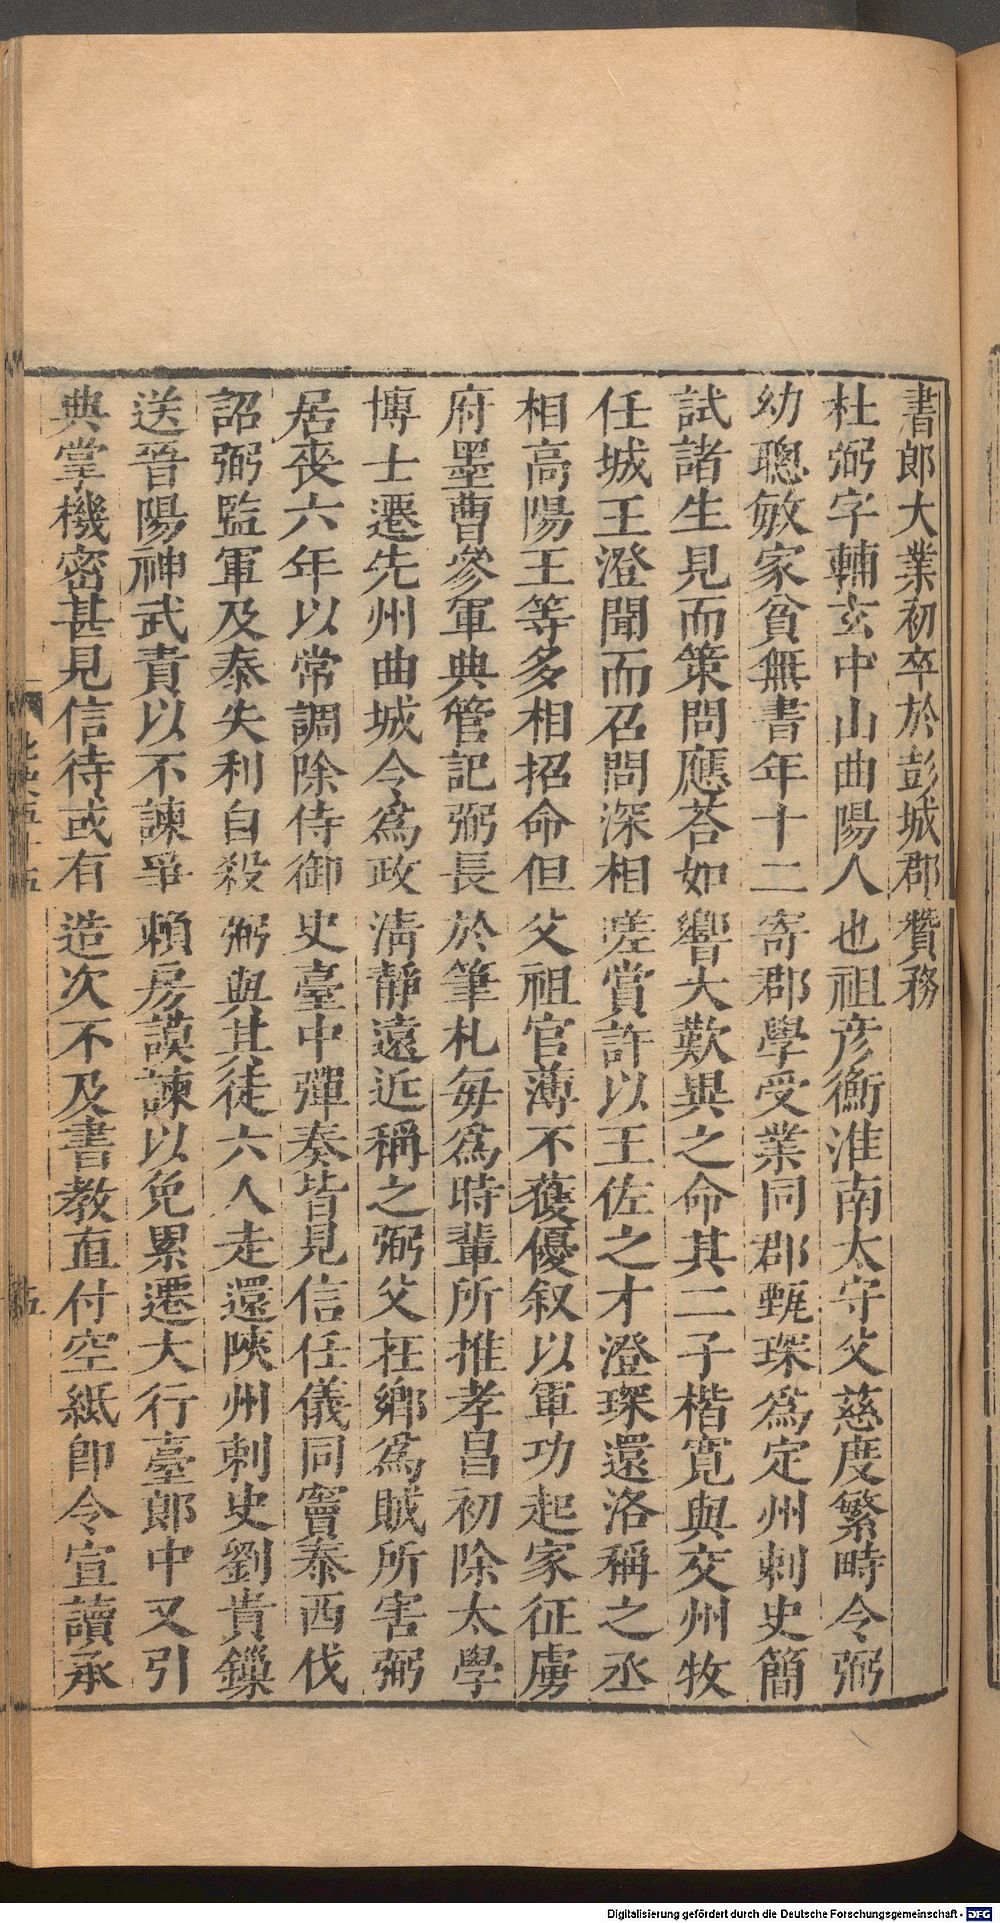 書郎大業初卒於彭城郡贊務
杜弼字輔玄中山曲陽人也祖彦衡淮南太守父慈度繁畤令弼
幼聰敏家貧無書年十二寄郡學受業同郡甄琛爲定州刺史簡
試諸生見而策問應荅如響大歎異之命其二子楷寬與交州牧
任城王澄聞而召問深相嗟賞許以王佐之才澄琛還洛稱之丞
相高陽王等多相招命但父祖官薄不獲優叙以軍功起家征虜
府墨曹參軍典管記弼長於筆札每爲時輩所推孝昌初除太學
博士遷先州曲城令爲政清靜遠近稱之弼父在鄉爲賊所害弼
居喪六年以常調除侍御史臺中彈奏皆見信任儀同竇泰西伐
詔弼監軍及泰失利自殺弼與其徒六人走還陝州刺史劉貴鏁
送晉陽神武責以不諫爭賴房謨諫以免累遷大行臺郎中又引
典掌機密甚見信待或有造次不及書教直付空紙卽令宣讀承
五
Digitalisierung gefördert durch die Deutsche Forschungsgemeinschaft - DFG